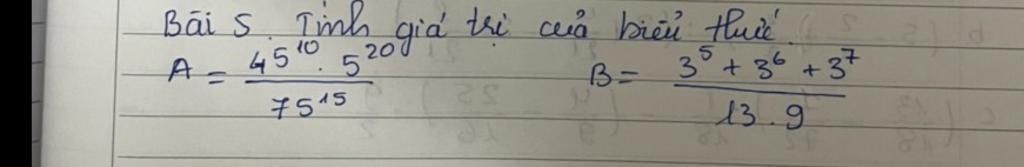 Bài 5. Tính giá trị của biểu thức.
A = \frac{45^{10} . 5^{20}}{75^{15}} B = \frac{3^5 + 3^6 + 3^7}{13 . 9}